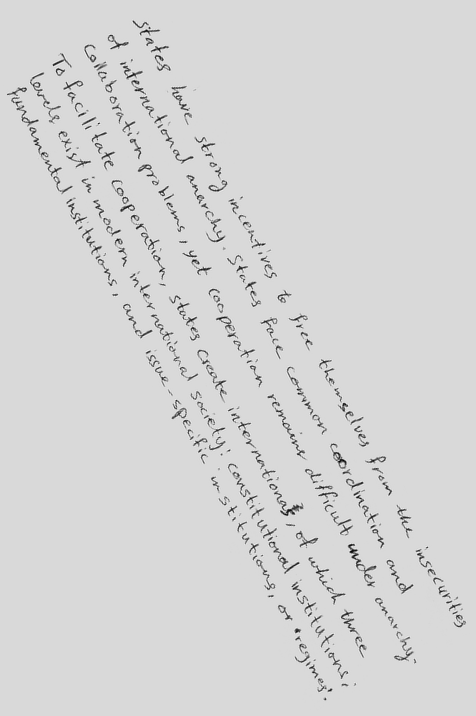 states have strong incentives to free themselves from the insecurities
of international anarchy. States face common coordination and
collaboration problems, yet cooperation remains difficult under anarchy.
To facilitate cooperation, states create international, of which three
levels exist in modern international society: constitutional institutions,
fundamental institutions, and issue-specific institutions, or 'regimes'.